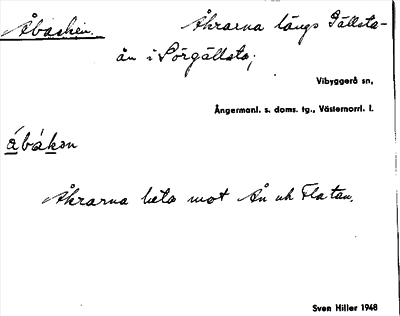 Åbacken. Åkrarna längs Gällsta-
ån i Sörgällsta;
Vibyggerå sn,
Ångermanl. s. doms. tg., Västernorrl. l.
åbákən
Åkrarna heta mot Ån och Flatan.
Sven Hiller 1948